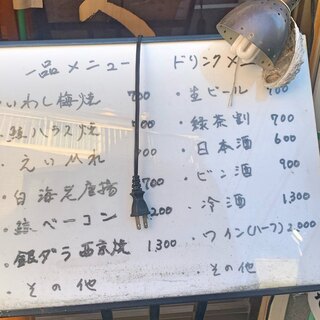 一品メニュー
・いわし梅焼 700
ハラス焼
・えいひれ
・白海老唐揚 700
ベーコン 1200
・銀ダラ西京焼 1300
・その他
ドリンクメニ
・生ビール 700
・緑茶割 700
・日本酒 600
・ビン酒 900
・冷酒 1,300
・ワイン(ハーフ) 2,000
・その他